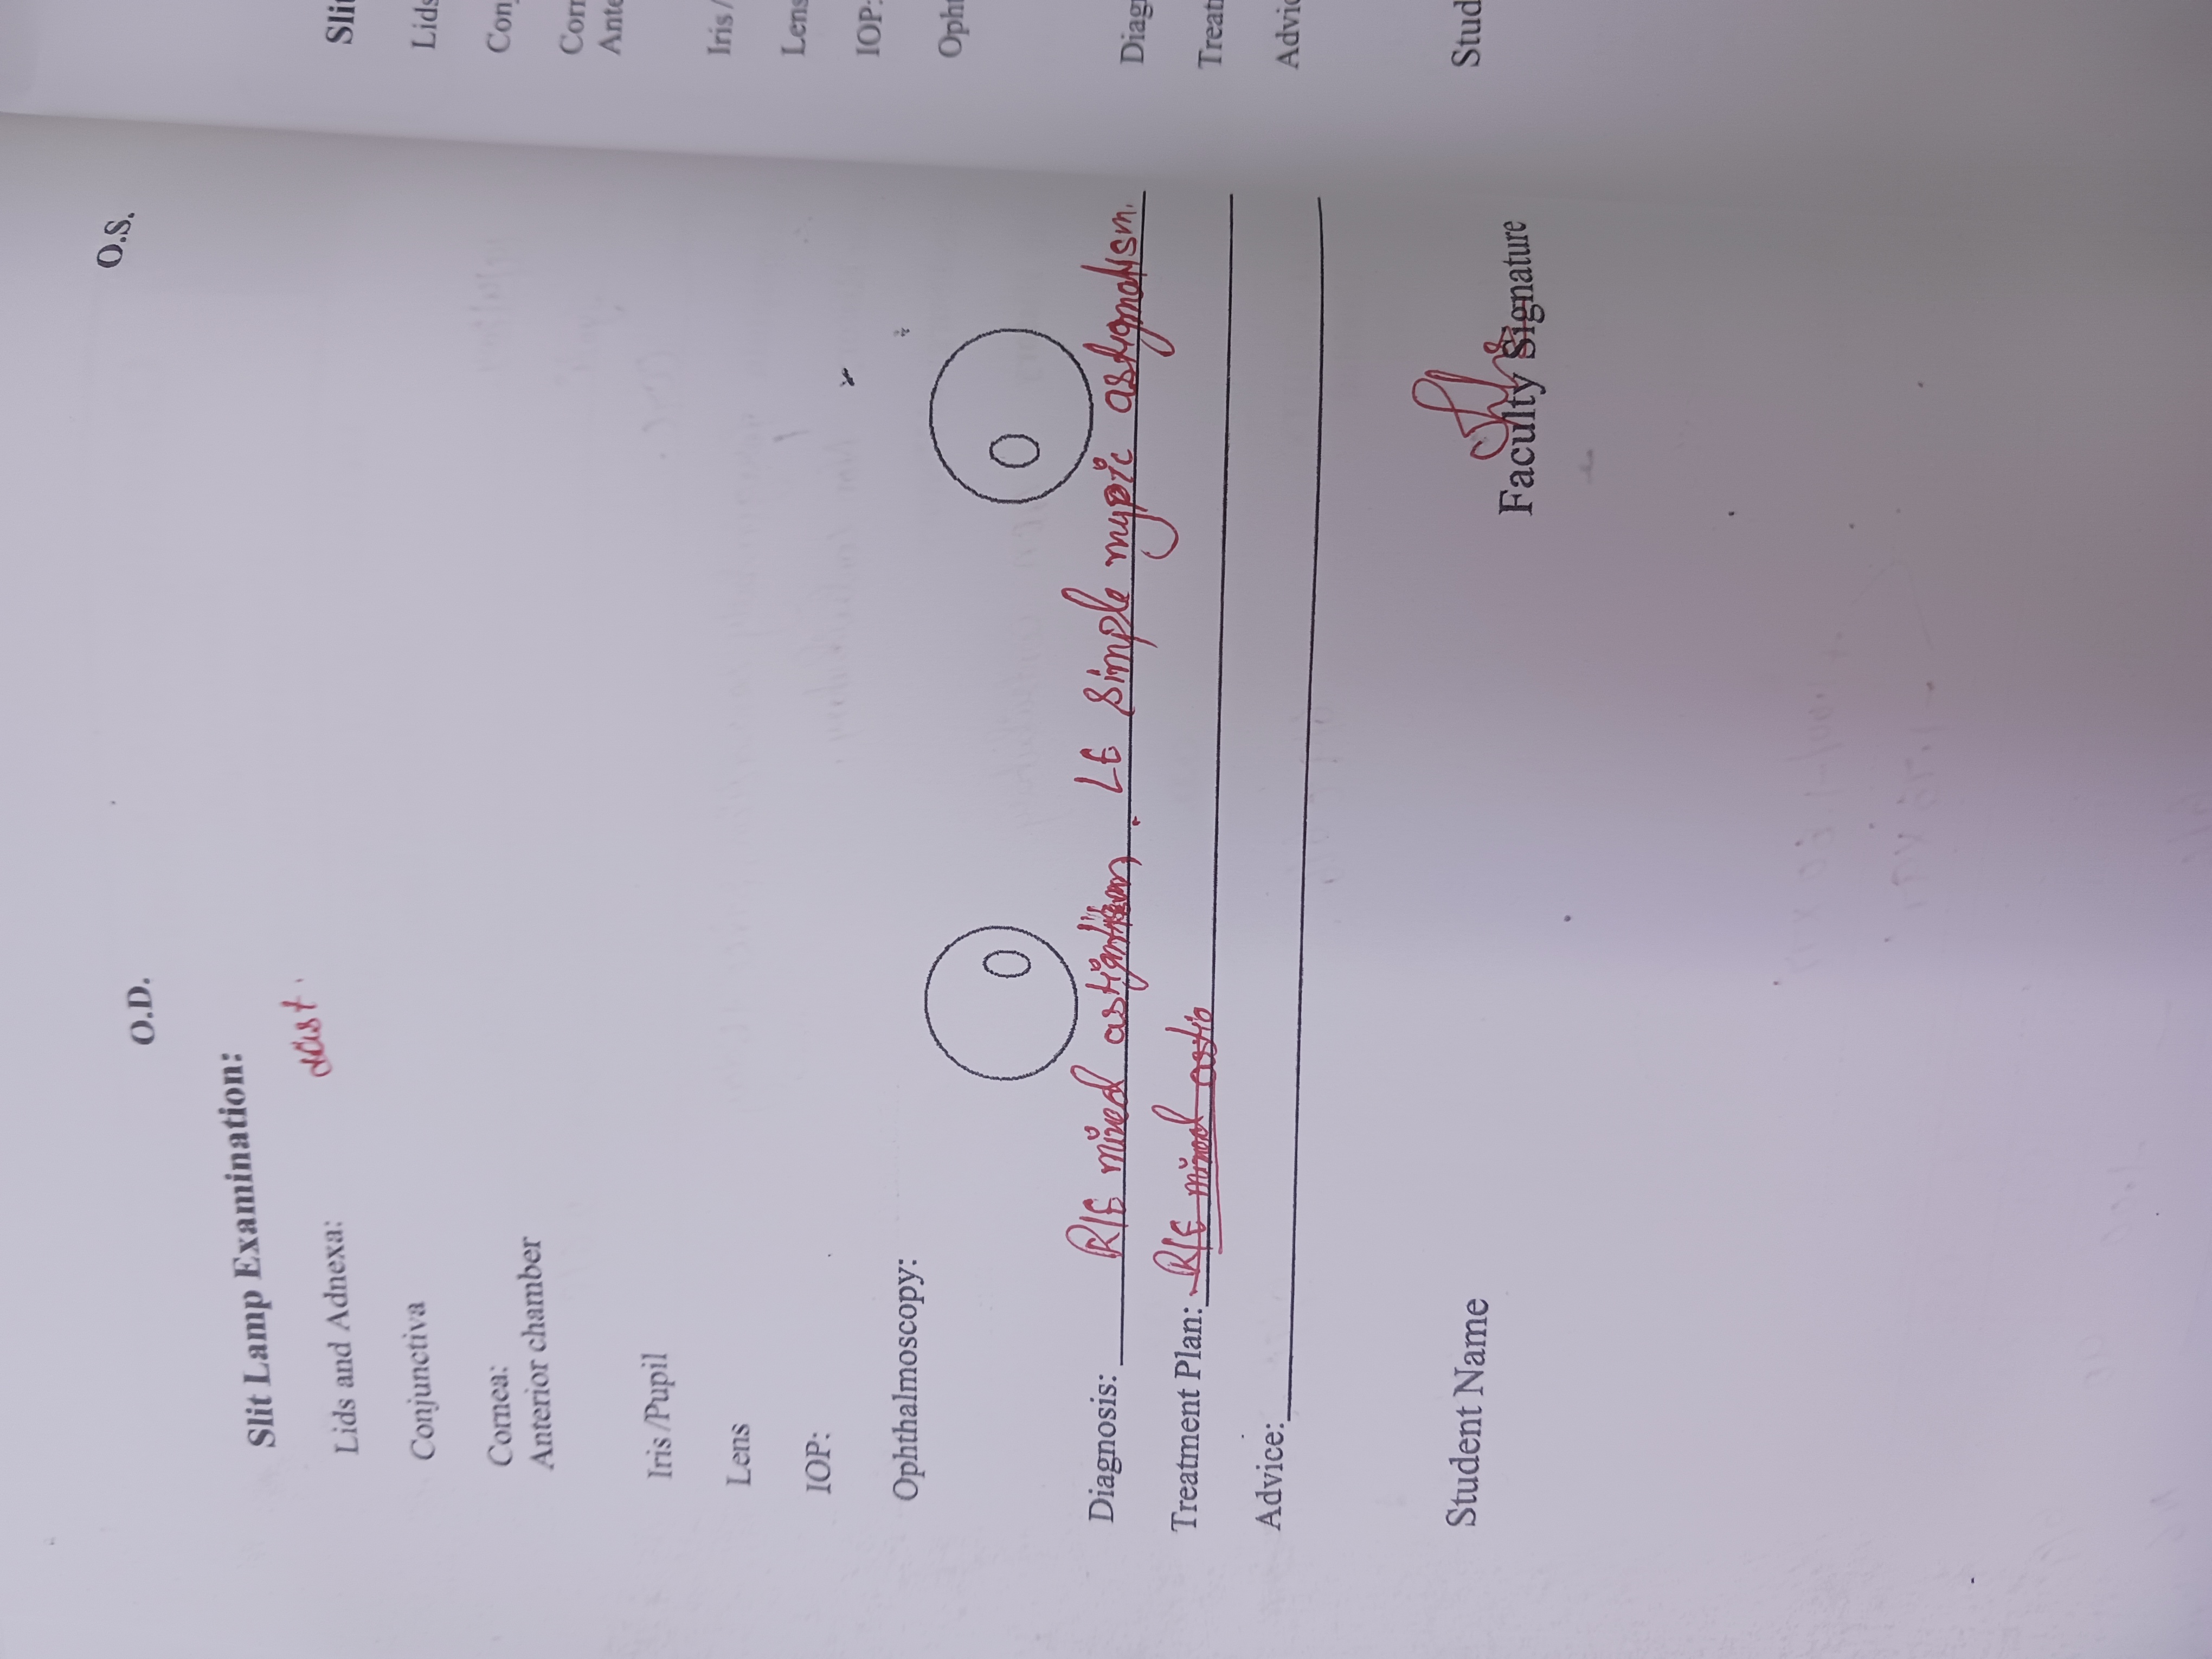 O.D. O.S.
Slit Lamp Examination:
Lids and Adnexa:
Conjunctiva
Cornea:
Anterior chamber
Iris /Pupil
Lens
IOP:
Ophthalmoscopy:
Diagnosis: R/E mixed LE Simple mypic astigmatism.
Treatment Plan: R/E mixed astig
Advice:
Student Name Faculty Signature
Slit
Lids
Con
Corn
Ante
Iris /
Lens
IOP:
Opht
Diag
Treat
Advic
Stud